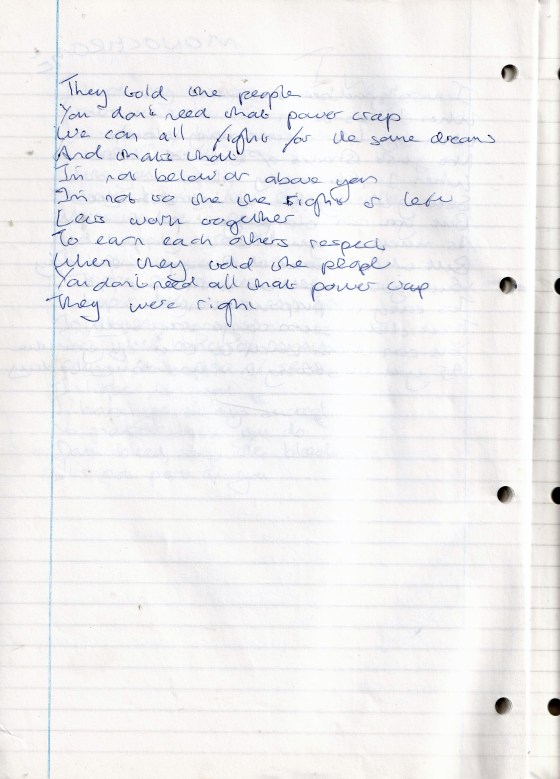 They told the people
You don't need that power crap
We can all fight for the same dreams
And that's that
I'm not below or above you
I'm not to the the right or left
Lets work together
To earn each others respect
When they told the people
You don't need all that power crap
They were right